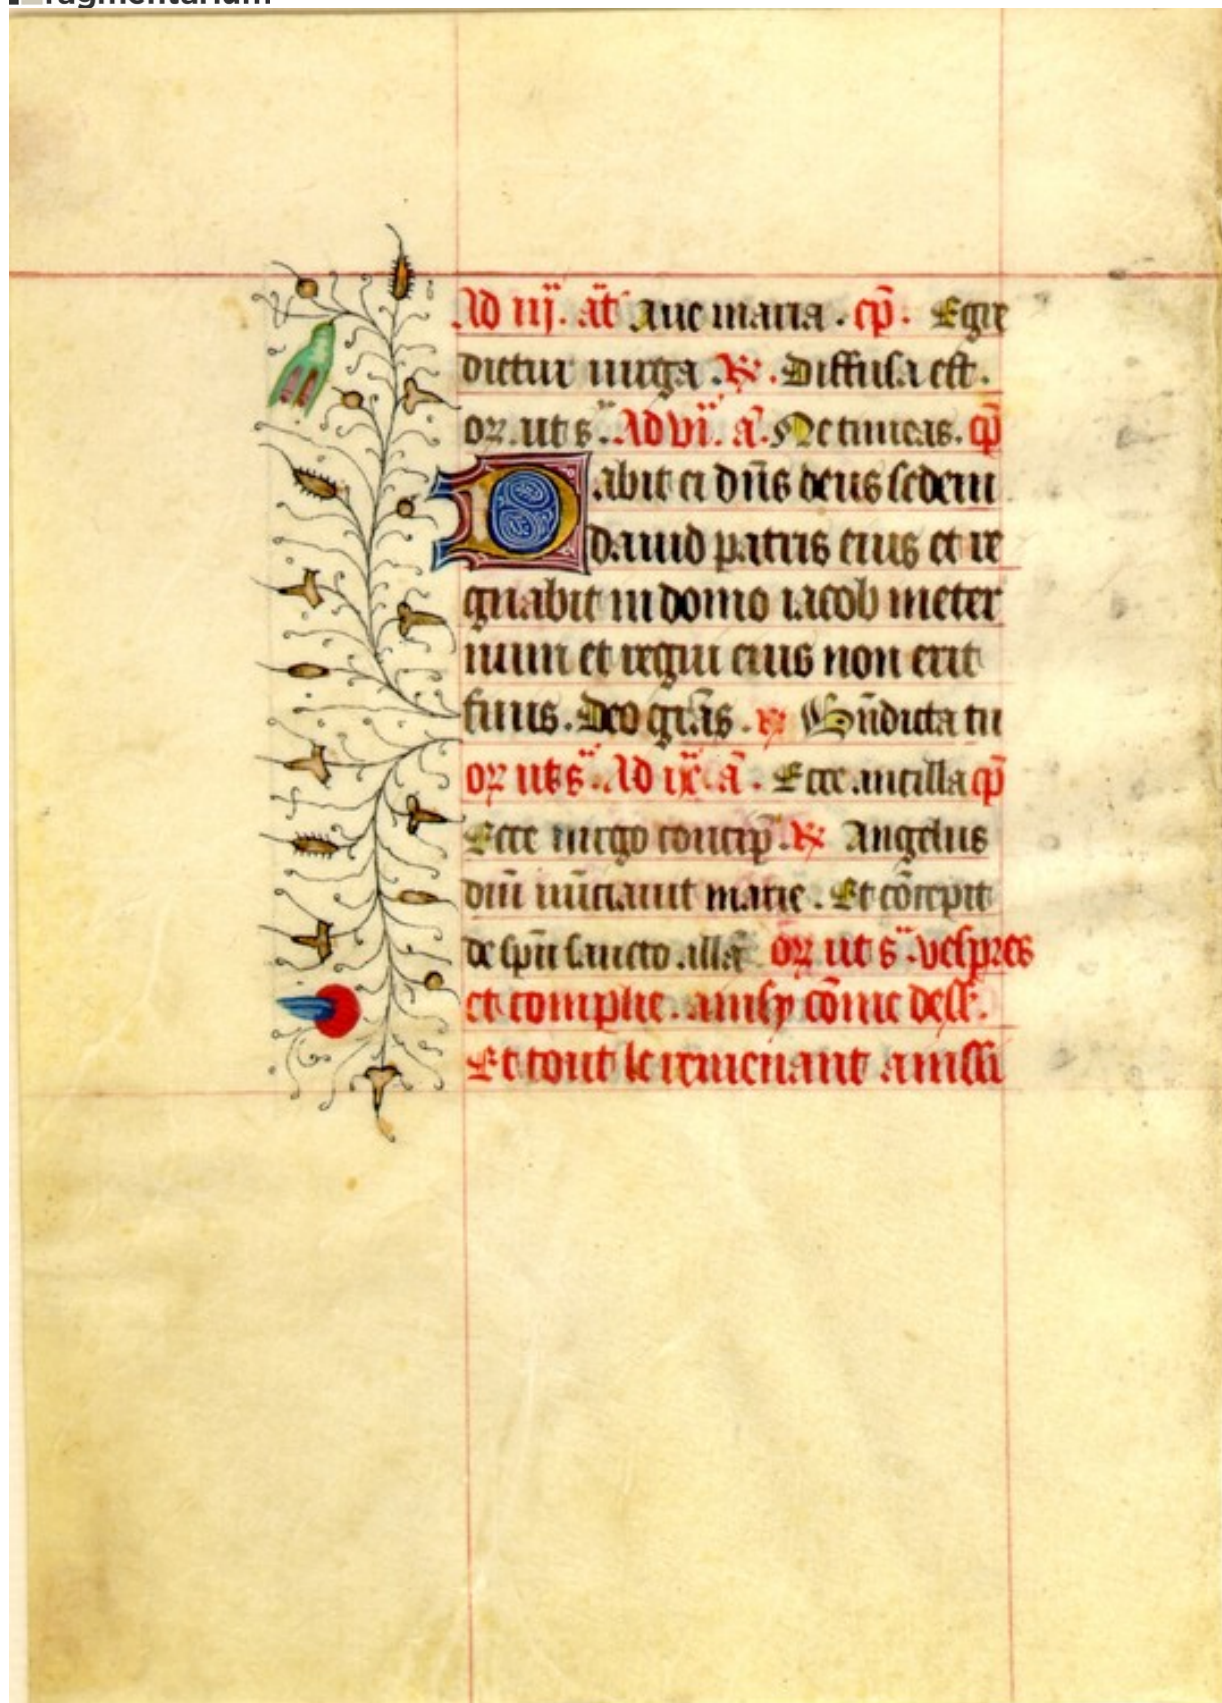 fragmentarium
Ad iij. añ Aue maria . cp̄. Egre
dietur uirga . ℟. Diffusa est.
or. ut s. Ad vi. a. Ne timeas. cp̄
Dabit ei dn̄s deus sedem
dauid patris eius et re
gnabit in domo iacob in eter
num et regni eius non erit
finis. Deo gr̄as. ℟ Bn̄dicta tu
or ut s. Ad ix. ā. Ecce ancilla cp̄
Ecce uirgo concip̄. ℟ Angelus
dn̄i nūciauit marie. Et cōcepit
de sp̄u sancto .all̄a or̄ ut s. vespres
et complie. ausy cōme dess.
Et tout le remenant aussi